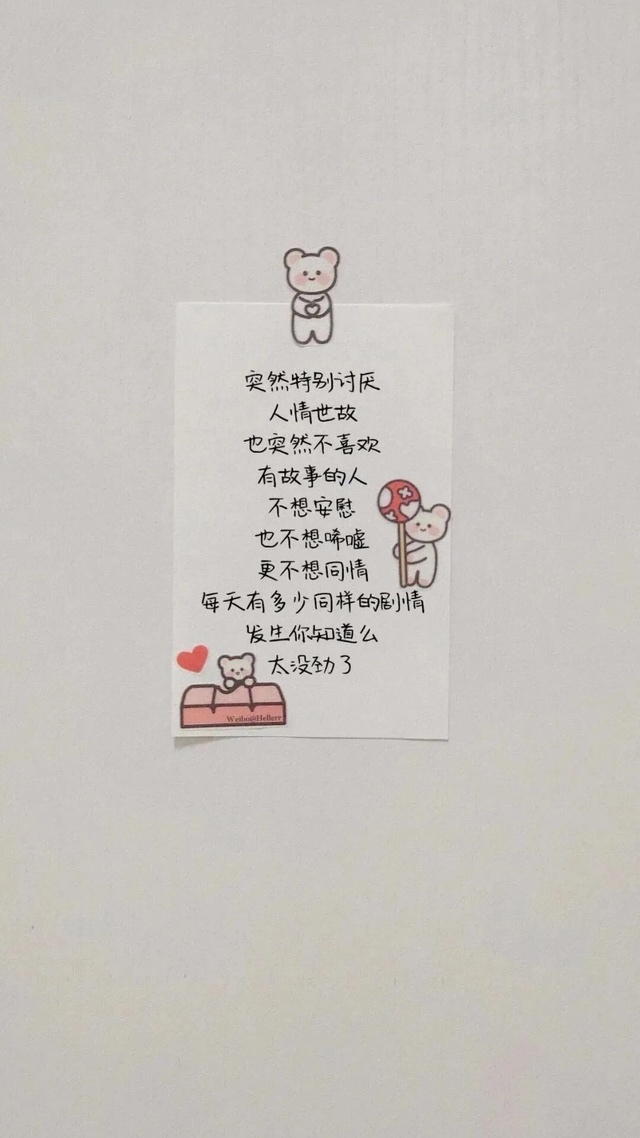 突然特别讨厌
人情世故
也突然不喜欢
有故事的人
不想安慰
也不想唏嘘
更不想同情
每天有多少同样的剧情
发生你知道么
太没劲了
Weibo@Hellerr